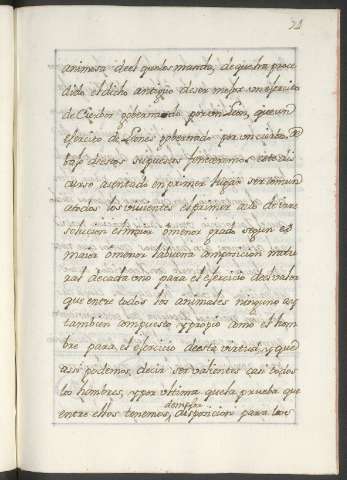 71
animosa deel que los manda, de que ha proce
dido el dicho antiguo de ser mejor un exercito
de Ciervos gobernado por un Leon, que un
exercito de Leones gobernado por un ciervo,
bajo de estos supuestos fundaremos este dis
curso asentado en primer lugar ser comun
a todos los vivientes el primer acto de
solucion en maior o menor grado segun es
maior o menor la buena composicion natu
ral de cada uno para el exercicio del valor
que entre todos los animales ninguno ay
tambien compuesto y propio como el hom
bre para el exercicio de esta virtud, y que
assi podemos decir ser valientes casi todos
los hombres, y por ultima que la prueba que
entre ellos tenemos, disposicion para